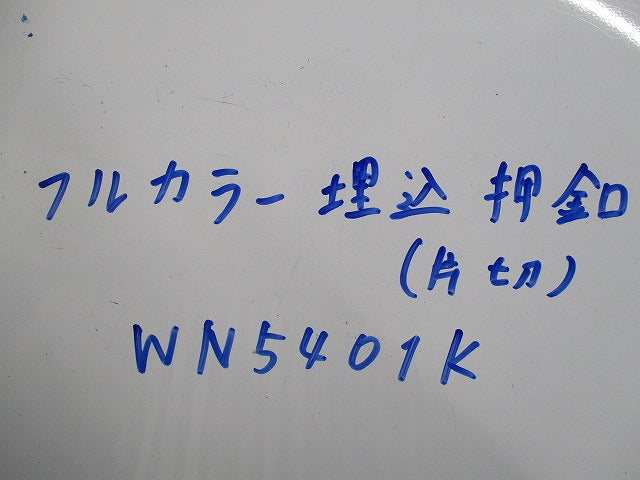 フルカラー埋込押釦
(片切)
WN5401K